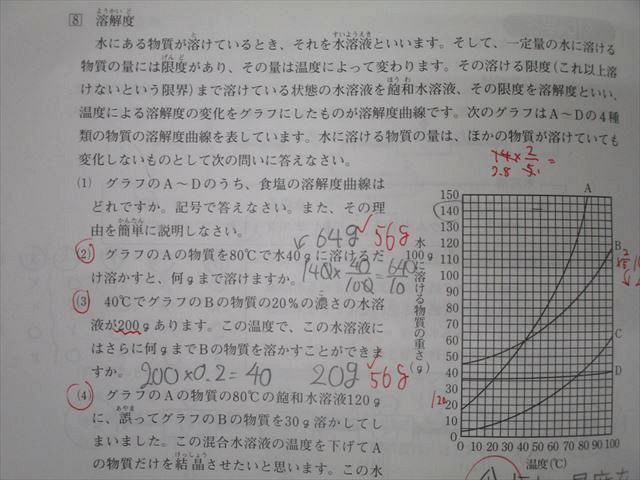 8 溶解度
水にある物質が溶けているとき、それを水溶液といいます。そして、一定量の水に溶ける
物質の量には限度があり、その量は温度によって変わります。その溶ける限度(これ以上溶
けないという限界)まで溶けている状態の水溶液を飽和水溶液、その限度を溶解度といい、
温度による溶解度の変化をグラフにしたものが溶解度曲線です。次のグラフはA～Dの4種
類の物質の溶解度曲線を表しています。水に溶ける物質の量は、ほかの物質が溶けていても
変化しないものとして次の問いに答えなさい。
(1) グラフのA～Dのうち、食塩の溶解度曲線は
どれですか。記号で答えなさい。また、その理
由を簡単に説明しなさい。
64g 56g
(2) グラフのAの物質を80℃で水40gに溶けるだ
け溶かすと、何gまで溶けますか。
140×40/100=640/10
(3) 40℃でグラフのBの物質の20%の濃さの水溶
液が200gあります。この温度で、この水溶液に
はさらに何gまでBの物質を溶かすことができま
すか。
200×0.2=40 20g 56g
(4) グラフのAの物質の80℃の飽和水溶液120g
に、誤ってグラフのBの物質を30g溶かしてし
まいました。この混合水溶液の温度を下げてA
の物質だけを結晶させたいと思います。この水
水100gに溶ける物質の重さ(g)
150
140
130
120
110
100
90
80
70
60
50
40
30
20
10
0
0 10 20 30 40 50 60 70 80 90 100
温度(℃)
A
B
C
D